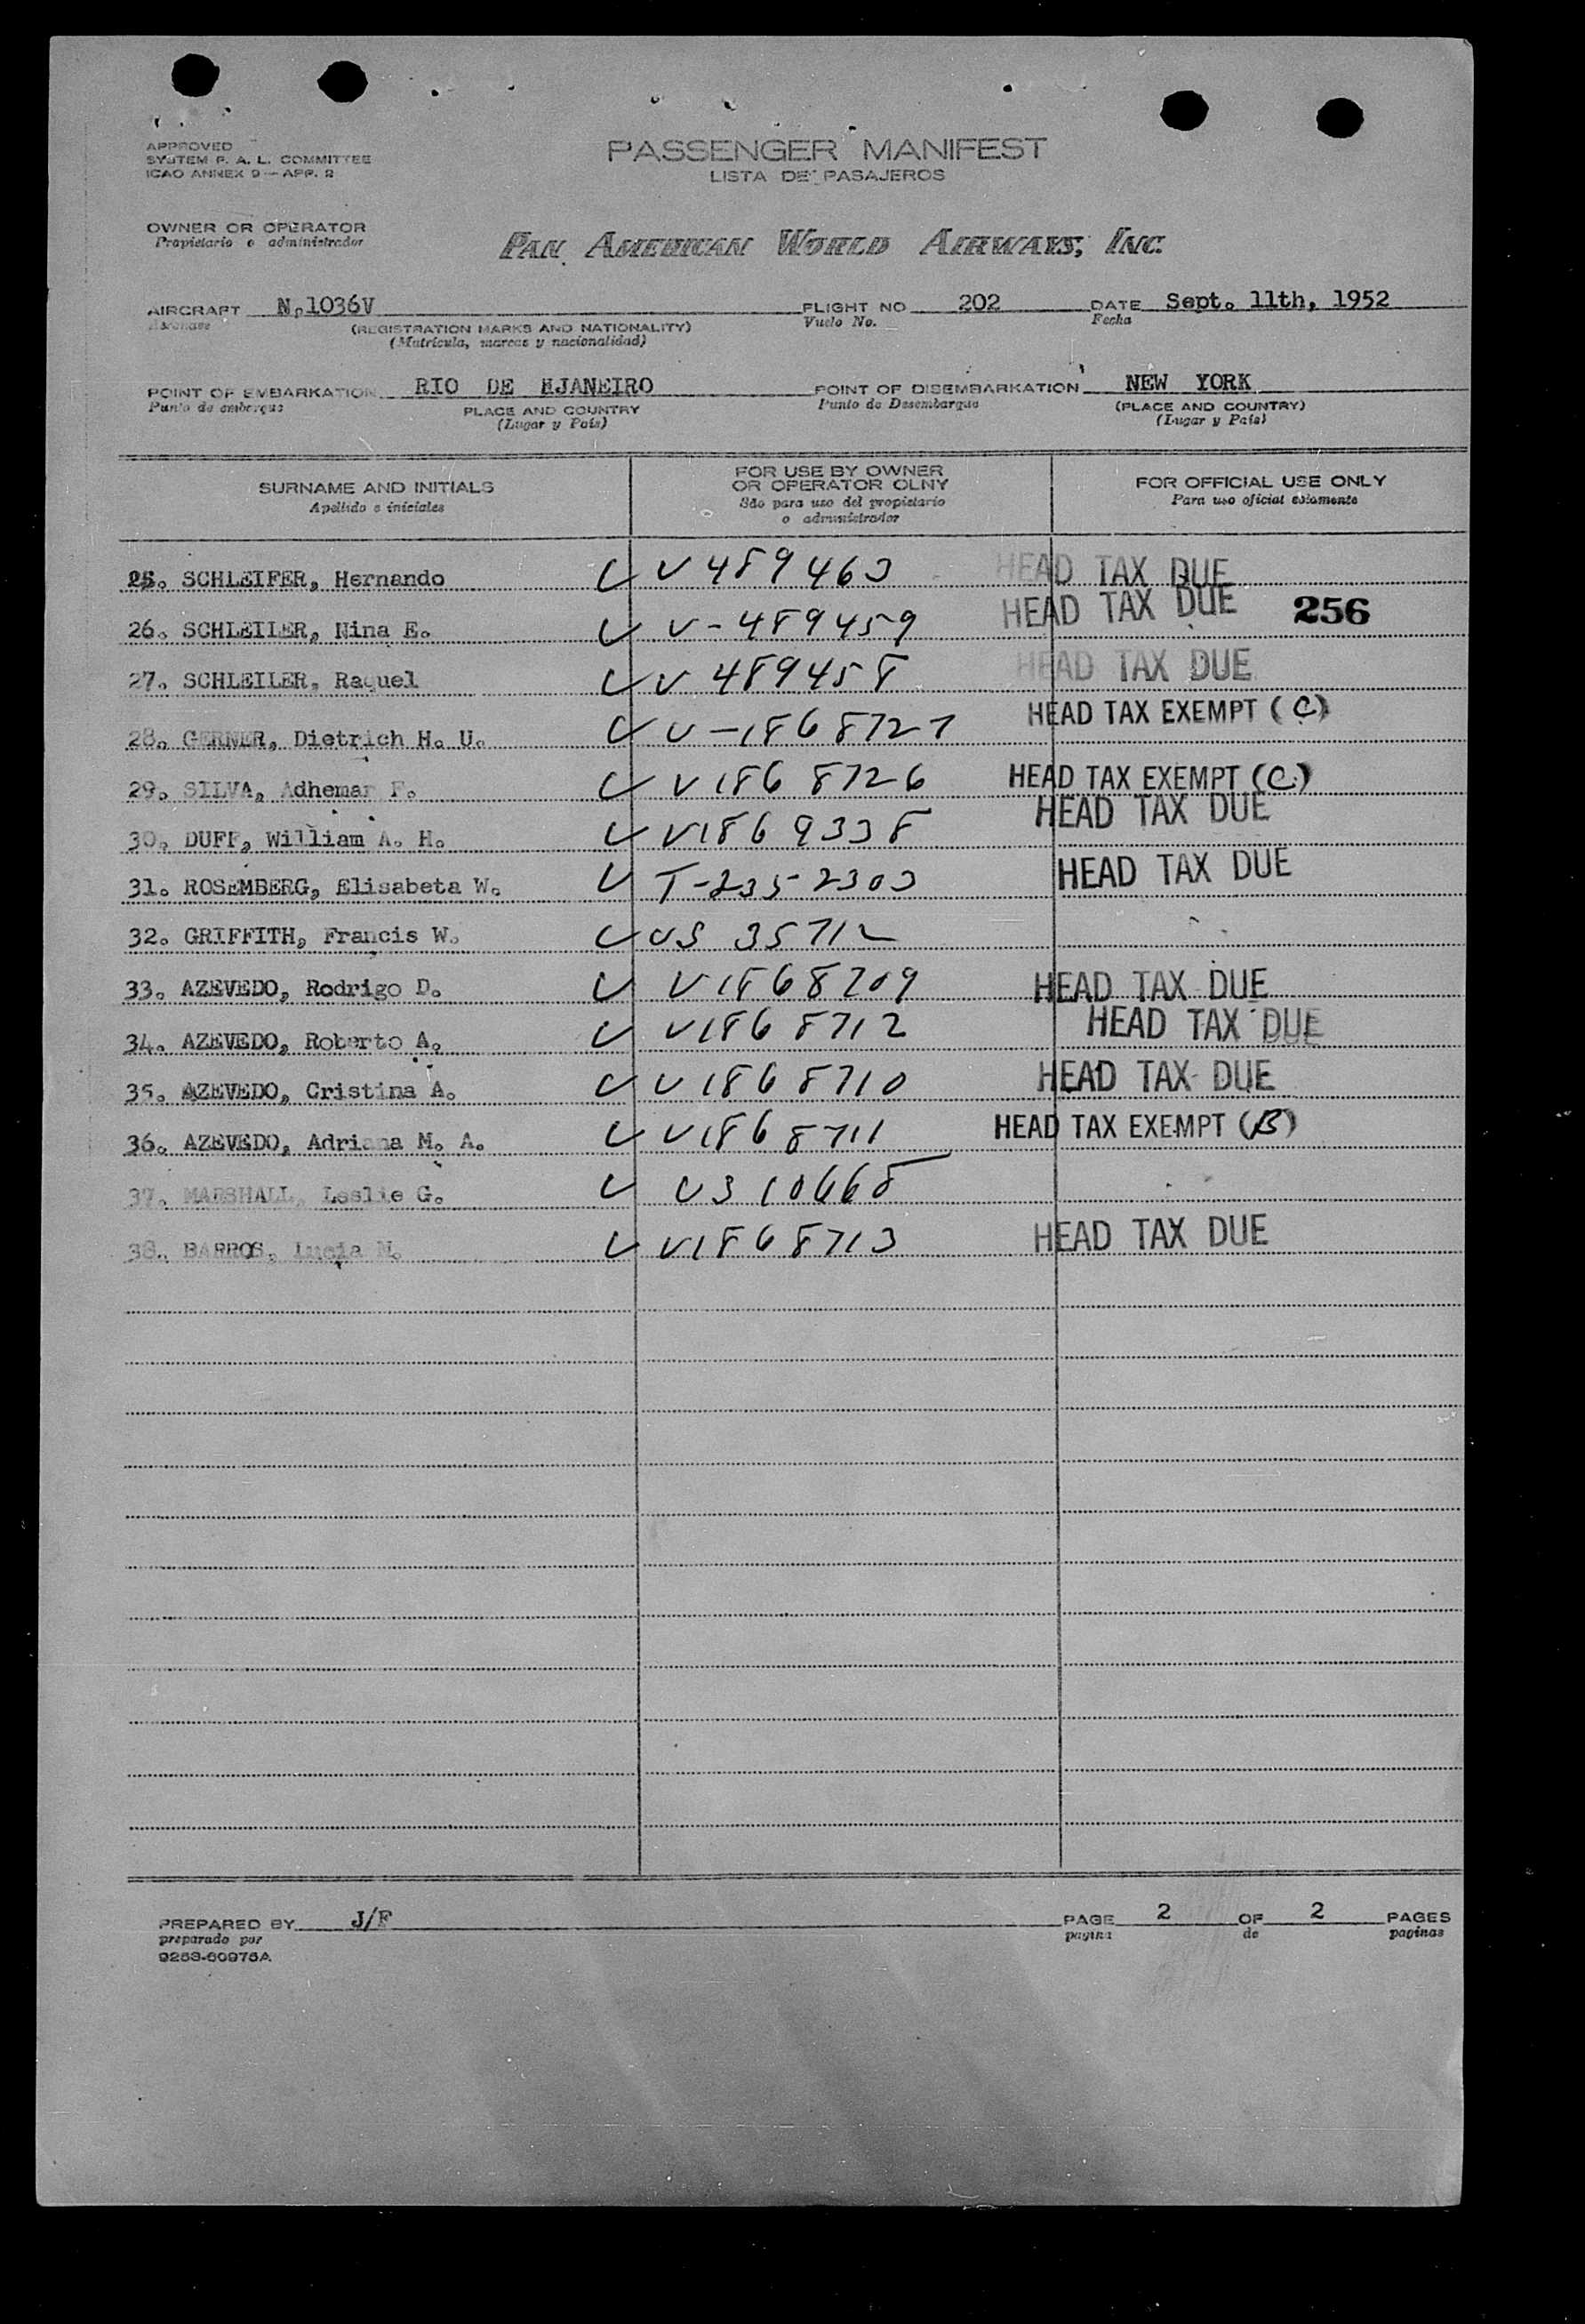 APPROVED
SYSTEM F. A. L. COMMITTEE
ICAO ANNEX 9 — APP. 2
PASSENGER MANIFEST
LISTA DE PASAJEROS
OWNER OR OPERATOR
Propietario o administrador
PAN AMERICAN WORLD AIRWAYS, INC.
AIRCRAFT N.1036V FLIGHT NO 202 DATE Sept. 11th, 1952
Aeronave (REGISTRATION MARKS AND NATIONALITY) Vuelo No. Fecha
(Matricula, marcas y nacionalidad)
POINT OF EMBARKATION RIO DE HJANEIRO POINT OF DISEMBARKATION NEW YORK
Punto de embarque PLACE AND COUNTRY Punto de Desembarque (PLACE AND COUNTRY)
(Lugar y País) (Lugar y País)
SURNAME AND INITIALS
Apellido e iniciales
FOR USE BY OWNER
OR OPERATOR OLNY
Sáo para uso del propietario
o administrador
FOR OFFICIAL USE ONLY
Para uso oficial solamente
25. SCHLEIFER, Hernando V 489463 HEAD TAX DUE
26. SCHLEILER, Nina E. V-489459 HEAD TAX DUE 256
27. SCHLEILER, Raquel V 489458 HEAD TAX DUE
28. GERNER, Dietrich H. U. V-1868727 HEAD TAX EXEMPT (C)
29. SILVA, Adhemar F. V1868726 HEAD TAX EXEMPT (C)
30. DUFF, William A. H. V1869338 HEAD TAX DUE
31. ROSEMBERG, Elisabeta W. T-2352303 HEAD TAX DUE
32. GRIFFITH, Francis W. US 35712
33. AZEVEDO, Rodrigo D. V1868709 HEAD TAX DUE
34. AZEVEDO, Roberto A. V1868712 HEAD TAX DUE
35. AZEVEDO, Cristina A. V1868710 HEAD TAX DUE
36. AZEVEDO, Adriana M. A. V1868711 HEAD TAX EXEMPT (B)
37. MARSHALL, Leslie G. US 10668
38. BARROS, Lucia N. V1868713 HEAD TAX DUE
PREPARED BY J/F PAGE 2 OF 2 PAGES
preparado por pagina de paginas
9253-60975A